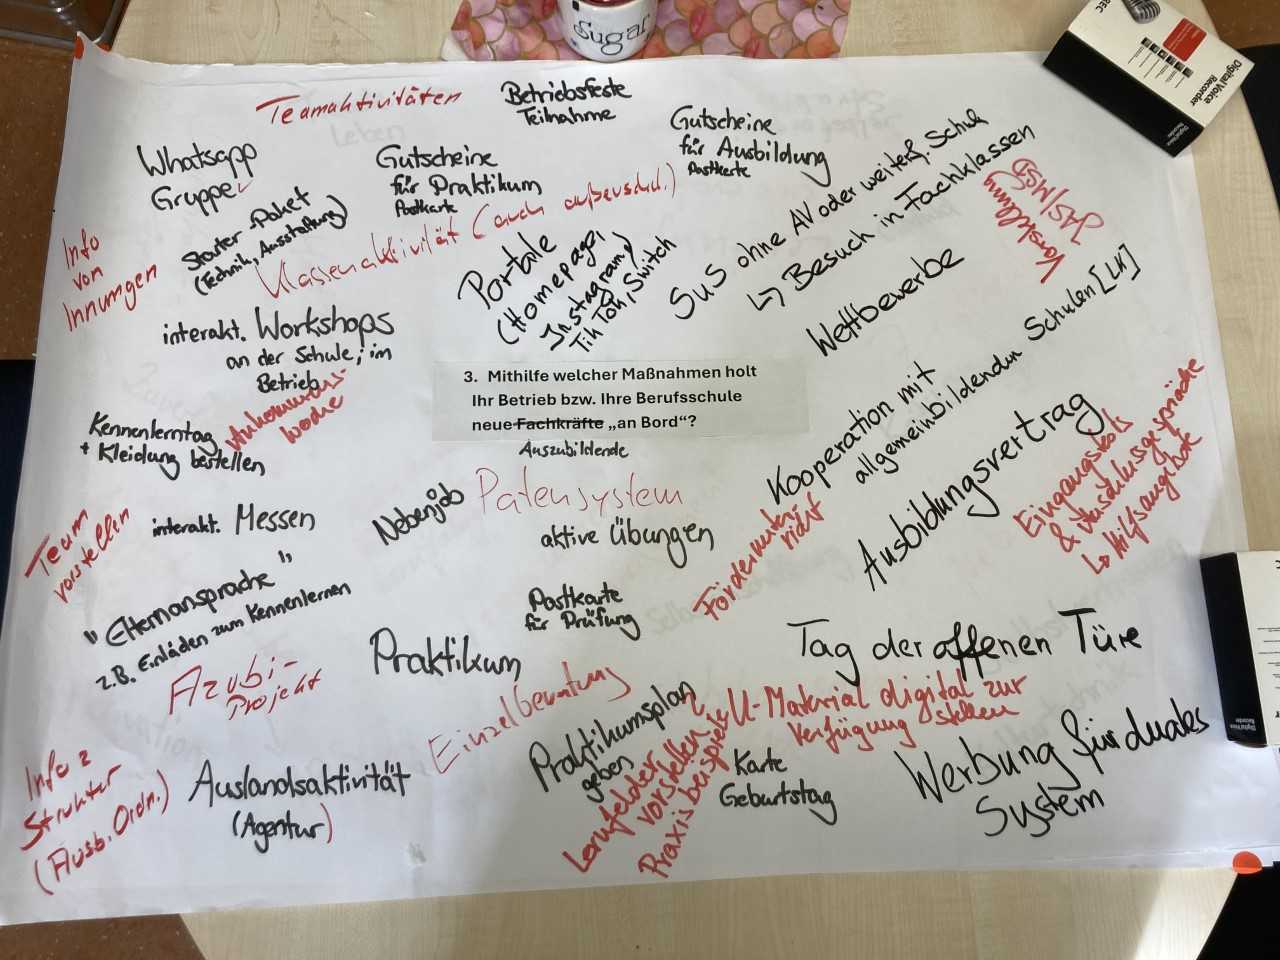 Sugar
REC
Digital Voice
Recorder
Teamaktivitäten
Betriebsfeste
Teilnahme
Whatsapp
Gruppe
Gutscheine
für Praktikum
Postkarte
Gutscheine
für Ausbildung
Postkarte
SuS ohne AV oder weiterf. Schule
↳ Besuch in Fachklassen
Vorstellung
JAS/MSD
Info
von
Innungen
Starter-Paket
(Technik, Ausstattung)
Klassenaktivität (auch außerschul.)
Portale
(Homepage,
Instagram,
TikTok, Switch
interakt. Workshops
an der Schule; im
Betrieb
Wettbewerbe
3. Mithilfe welcher Maßnahmen holt
Ihr Betrieb bzw. Ihre Berufsschule
neue Fachkräfte „an Bord“?
Auszubildende
Ankommens-
woche
Kennenlerntag
+ Kleidung bestellen
Kooperation mit
allgemeinbildenden Schulen [LK]
Ausbildungsvertrag
Eingangstests
& Anschlussgespräche
↳ Hilfsangebote
Team
vorstellen
interakt. Messen
Nebenjob
Patensystem
aktive Übungen
Förderunter-
richt
"Elternansprache"
z.B. Einladen zum Kennenlernen
Postkarte
für Prüfung
Praktikum
Tag der offenen Türe
Azubi-
Projekt
Einzelberatung
Praktikumsplan
geben
Lernfelder
vorstellen
Praxisbeispiele
U-Material digital zur
Verfügung stellen
Karte
Geburtstag
Werbung für duales
System
Info z
Struktur
(Ausb. Ordn.)
Auslandsaktivität
(Agentur)
Digital Voice
Recorder